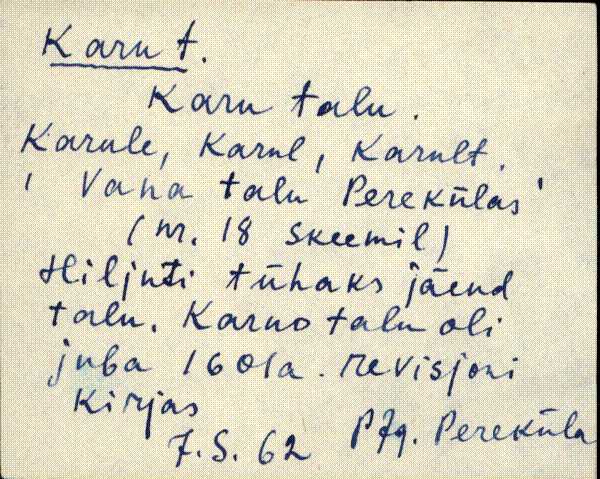 Karu t.
Karu talu.
Karule, Karul, Karult.
' Vana talu Perekülas '
(nr. 18 skeemil)
Hiljuti tühaks jäend
talu. Karuo talu oli
juba 1601a. revisjoni
kirjas
7.S.62 PJg. Pereküla